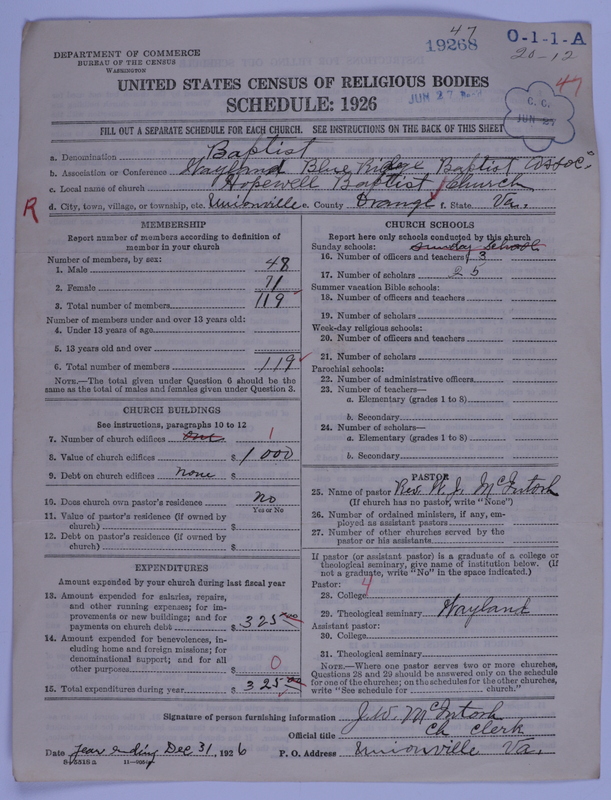 47
19268
O-1-1-A
20-12
DEPARTMENT OF COMMERCE
BUREAU OF THE CENSUS
WASHINGTON
UNITED STATES CENSUS OF RELIGIOUS BODIES
SCHEDULE: 1926
JUN 27
C. C.
JUN 27
47
FILL OUT A SEPARATE SCHEDULE FOR EACH CHURCH. SEE INSTRUCTIONS ON THE BACK OF THIS SHEET
a. Denomination Baptist
b. Association or Conference Wayland Blue Ridge Baptist Assoc.
c. Local name of church Hopewell Baptist Church
R
d. City, town, village, or township, etc. Unionville e. County Orange f. State Va.
MEMBERSHIP
Report number of members according to definition of
member in your church
Number of members, by sex:
1. Male 48
2. Female 71
3. Total number of members 119
Number of members under and over 13 years old:
4. Under 13 years of age
5. 13 years old and over
6. Total number of members 119
NOTE.—The total given under Question 6 should be the
same as the total of males and females given under Question 3.
CHURCH BUILDINGS
See instructions, paragraphs 10 to 12
7. Number of church edifices one 1
8. Value of church edifices $ 1000
9. Debt on church edifices none $
10. Does church own pastor's residence No
Yes or No
11. Value of pastor's residence (if owned by
church) $
12. Debt on pastor's residence (if owned by
church) $
EXPENDITURES
Amount expended by your church during last fiscal year
13. Amount expended for salaries, repairs,
and other running expenses; for im-
provements or new buildings; and for
payments on church debt $ 325 00
14. Amount expended for benevolences, in-
cluding home and foreign missions; for
denominational support; and for all
other purposes $ 0
15. Total expenditures during year $ 325 00
CHURCH SCHOOLS
Report here only schools conducted by this church
Sunday schools: Sunday School
16. Number of officers and teachers 3
17. Number of scholars 25
Summer vacation Bible schools:
18. Number of officers and teachers
19. Number of scholars
Week-day religious schools:
20. Number of officers and teachers
21. Number of scholars
Parochial schools:
22. Number of administrative officers
23. Number of teachers—
a. Elementary (grades 1 to 8)
b. Secondary
24. Number of scholars—
a. Elementary (grades 1 to 8)
b. Secondary
PASTOR
25. Name of pastor Rev. W. J. McIntosh
(If church has no pastor, write "None")
26. Number of ordained ministers, if any, em-
ployed as assistant pastors
27. Number of other churches served by the
pastor or his assistants
If pastor (or assistant pastor) is a graduate of a college or
theological seminary, give name of institution below. (If
not a graduate, write "No" in the space indicated.)
Pastor: 4
28. College
29. Theological seminary Wayland
Assistant pastor:
30. College
31. Theological seminary
NOTE.—Where one pastor serves two or more churches,
Questions 28 and 29 should be answered only on the schedule
for one of the churches; on the schedules for the other churches,
write "See schedule for church."
Signature of person furnishing information J. W. McIntosh
Official title Ch Clerk
Date year ending Dec 31, 1926 P. O. Address Unionville Va.